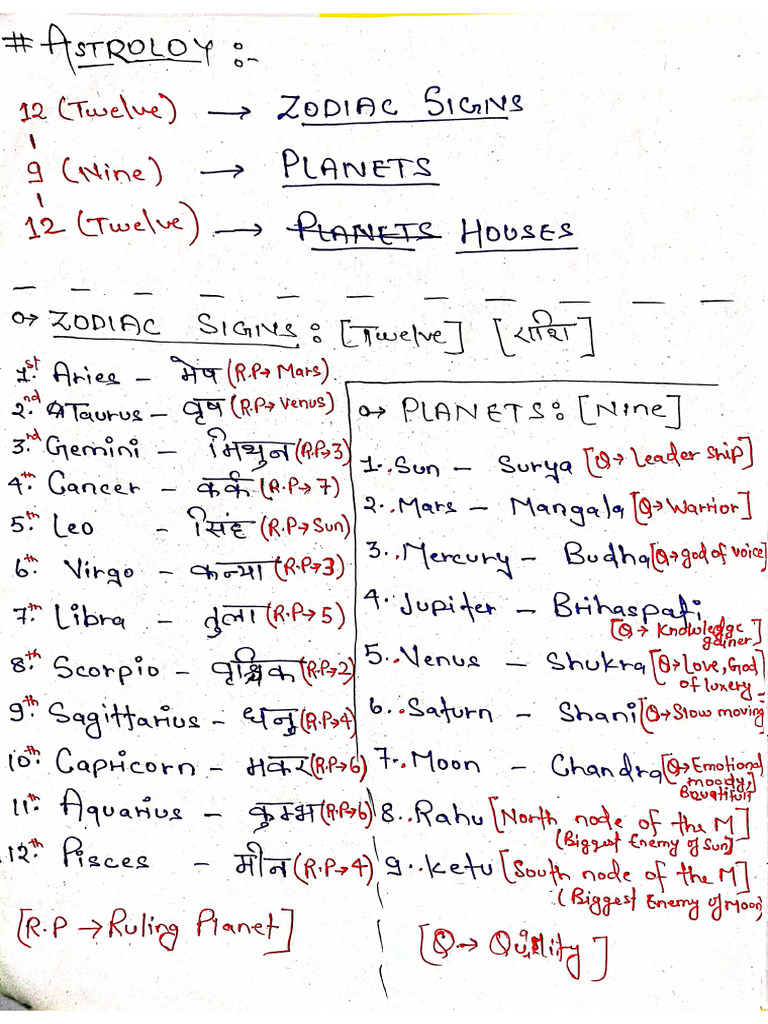 # ASTROLOY :-
12 (Twelve) → ZODIAC SIGNS
9 (Nine) → PLANETS
12 (Twelve) → PLANETS HOUSES
ZODIAC SIGNS : [Twelve] [राशि]
1st. Aries - मेष (R.P→ Mars)
2nd. Taurus - वृष (R.P→ Venus)
3rd. Gemini - मिथुन (R.P→3)
4th. Cancer - कर्क (R.P→7)
5th. Leo - सिंह (R.P→ Sun)
6th. Virgo - कन्या (R.P→3)
7th. Libra - तुला (R.P→5)
8th. Scorpio - वृश्चिक (R.P→2)
9th. Sagittarius - धनु (R.P→4)
10th. Capricorn - मकर (R.P→6)
11th. Aquarius - कुम्भ (R.P→6)
12th. Pisces - मीन (R.P→4)
[R.P → Ruling Planet]
PLANETS: [Nine]
1. Sun - Surya [Q→ Leader ship]
2. Mars - Mangala [Q→ Warrior]
3. Mercury - Budha [Q→ god of voice]
4. Jupiter - Brihaspati
[Q → Knowledge
gainer]
5. Venus - Shukra [Q→ Love, God
of luxery]
6. Saturn - Shani [Q→ Slow moving]
7. Moon - Chandra [Q→ Emotional
moody,
Bquatifull]
8. Rahu [North node of the M]
(Biggest Enemy of Sun)
9. Ketu [South node of the M]
(Biggest Enemy of Moon)
[Q → Quility]